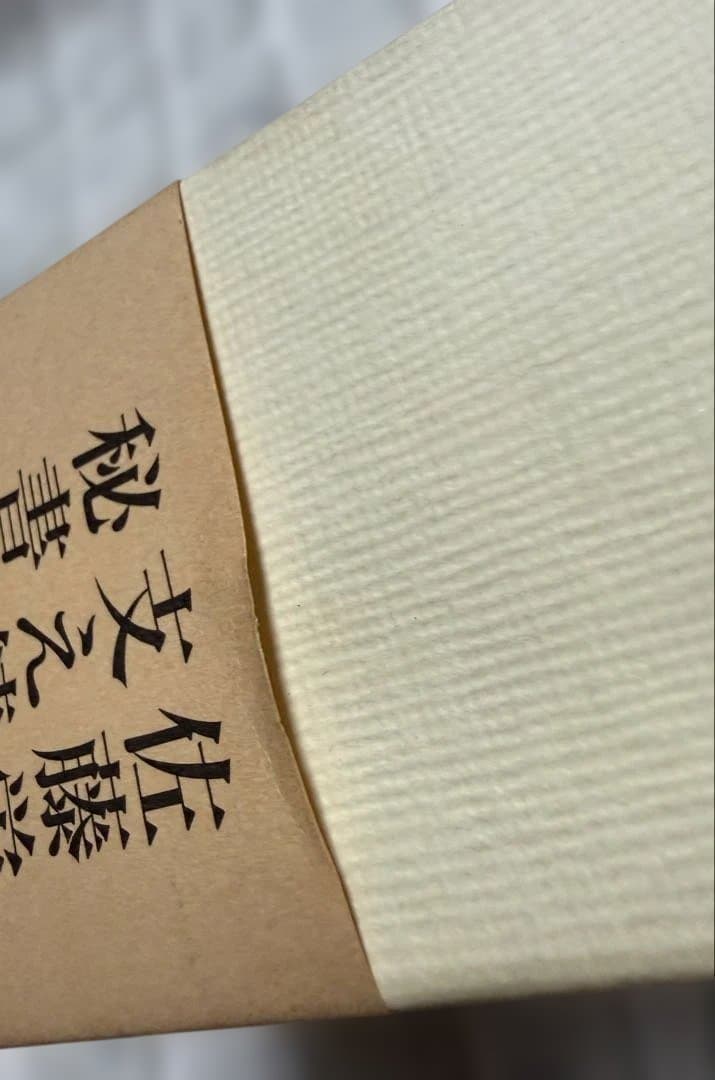 佐藤
支え
秘書